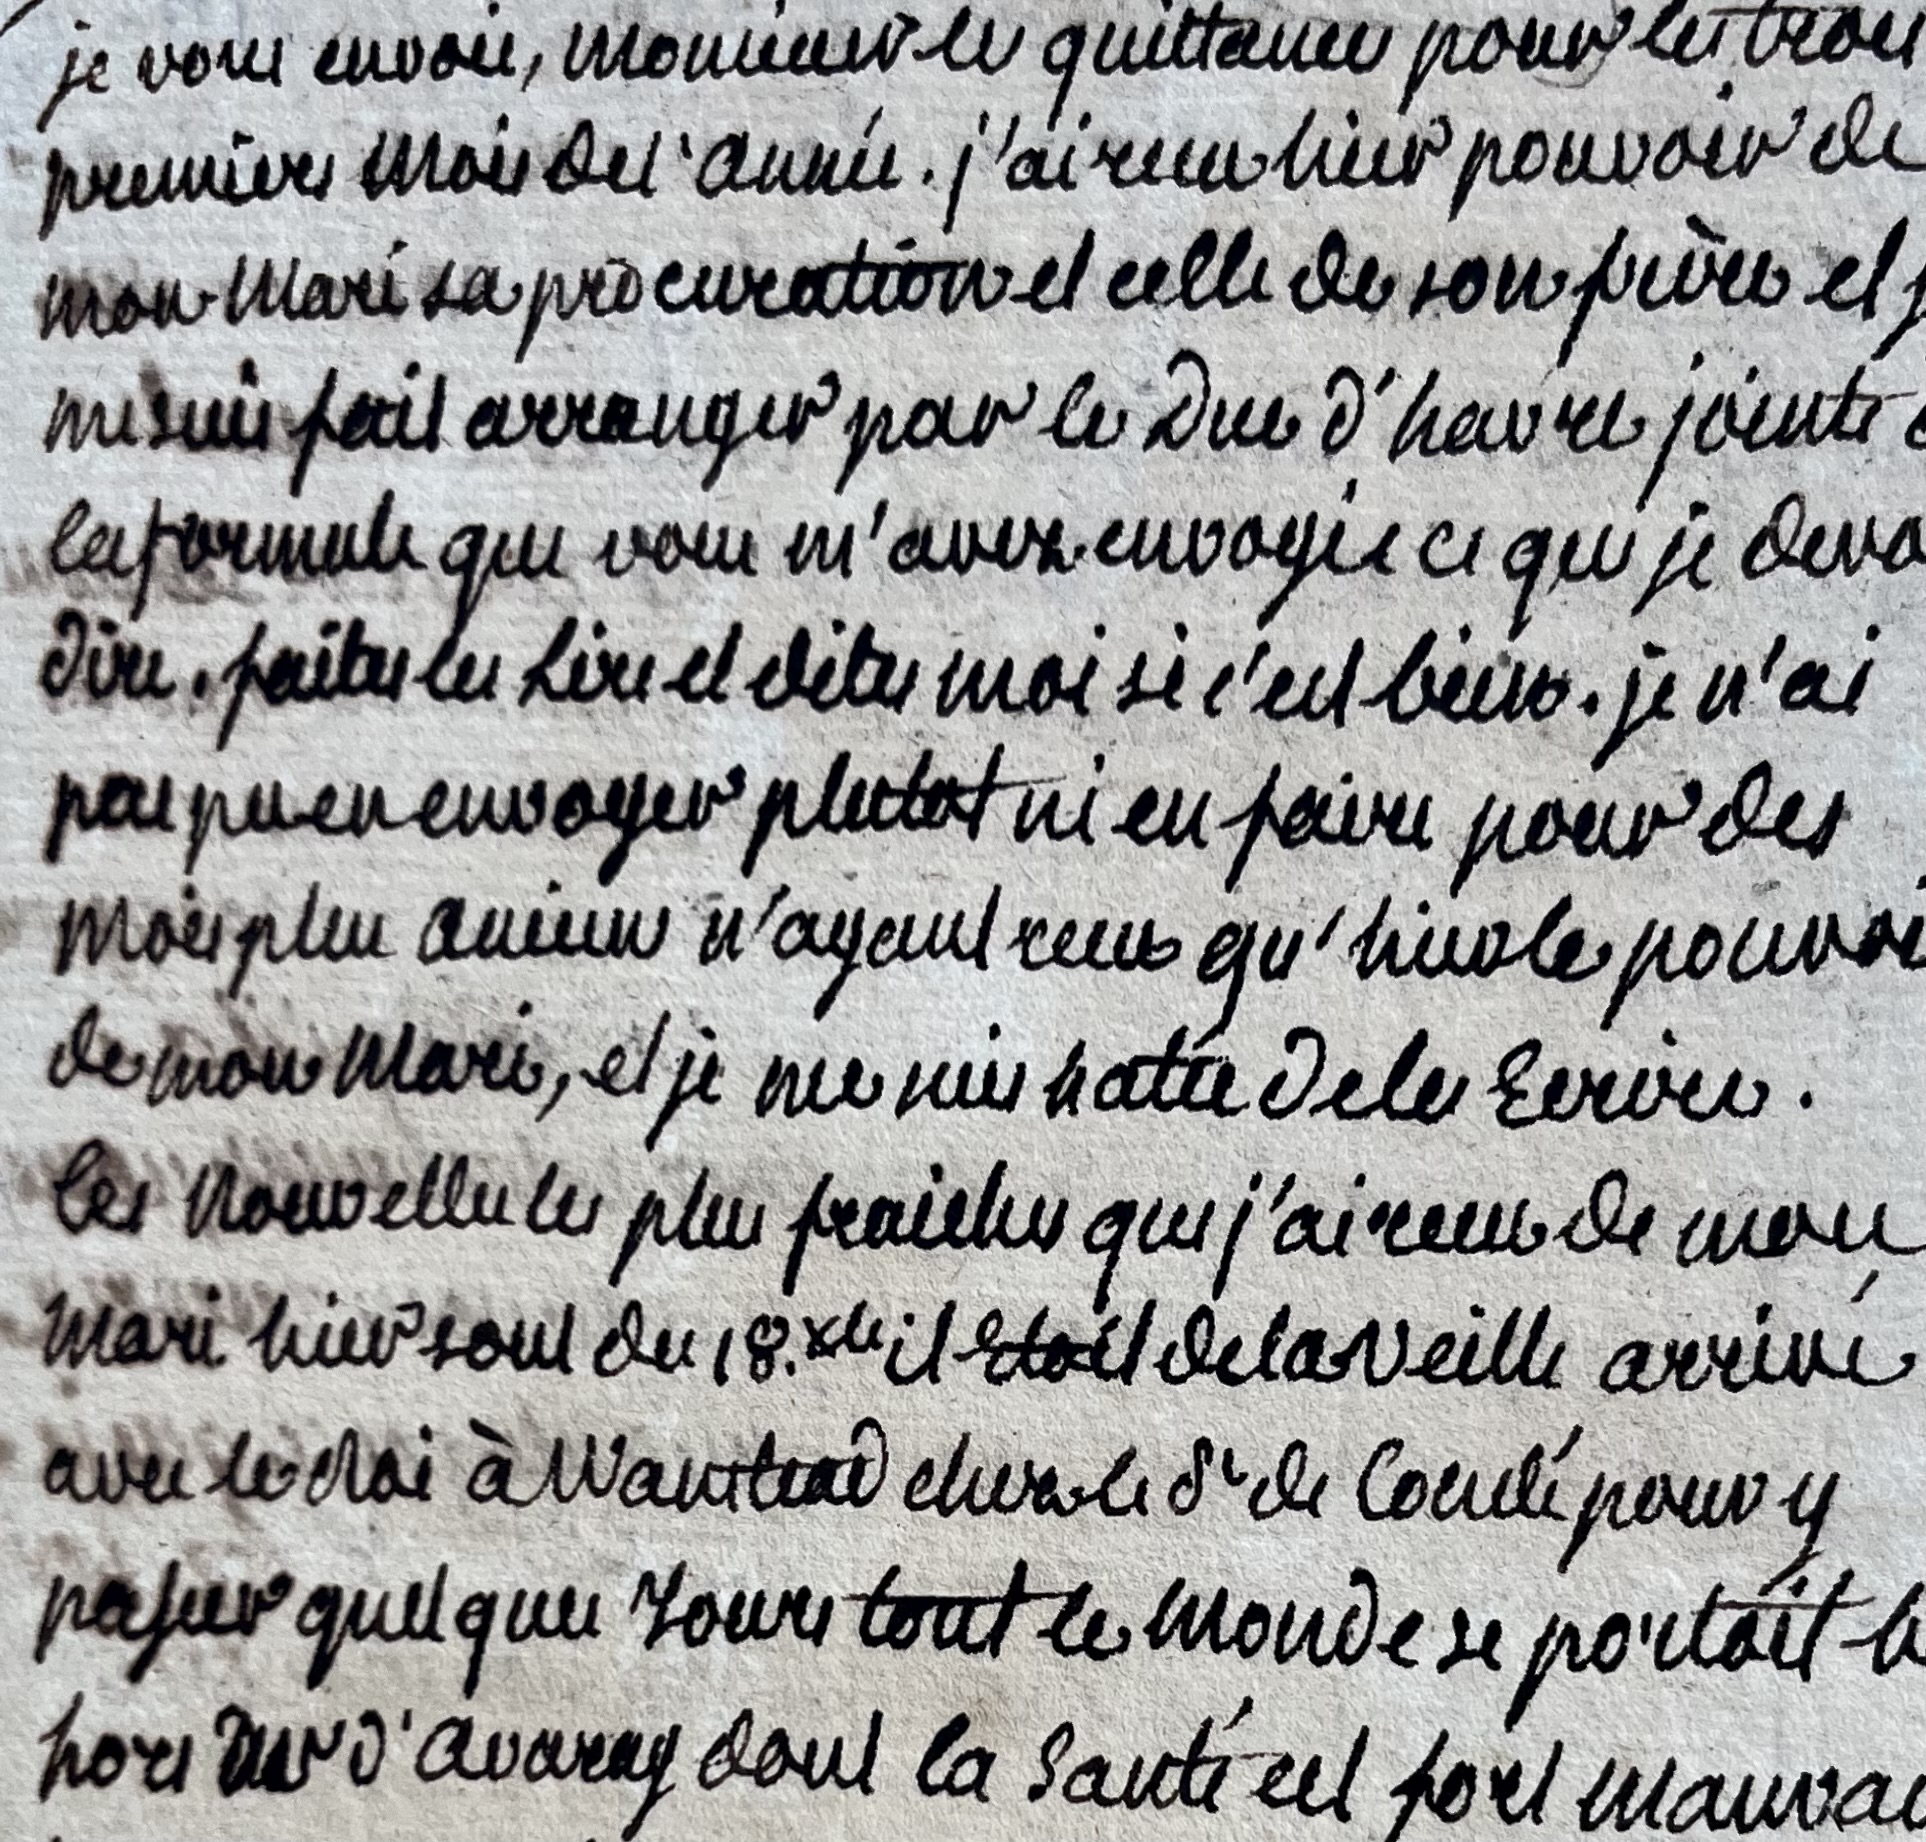 je vous envoie, Monsieur les quittances pour les trois
premiers Mois de l'année. j'ai reçu hier pouvoir de
mon Mari sa procuration et celle de son frère et j
me suis fait arranger par le Duc d'havré jointe a
la formule que vous m'avez envoyée ce que je devo
dire. faites les Lire et dites moi si c'est bien. je n'ai
pas pu en envoyer plutot ni en faire pour des
Mois plus anciens n'ayant reçu qu'hier le pouvoi
de mon Mari, et je me suis hatée de les Ecrire.
les Nouvelles les plus fraiches que j'ai reçues de mon
Mari hier sont du 18. xbre il Etoit de la Veille arrivé
avec le Roi à Wanstead chez le Pce de Condé pour y
passer quelques Jours tout le Monde se portoit b
hors d'Avaray dont la Santé est fort Mauvai